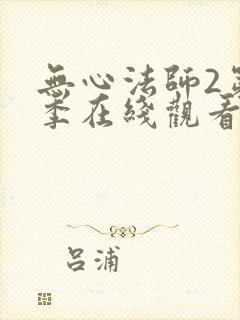 無心法師2第
季在綫觀看
吕浦